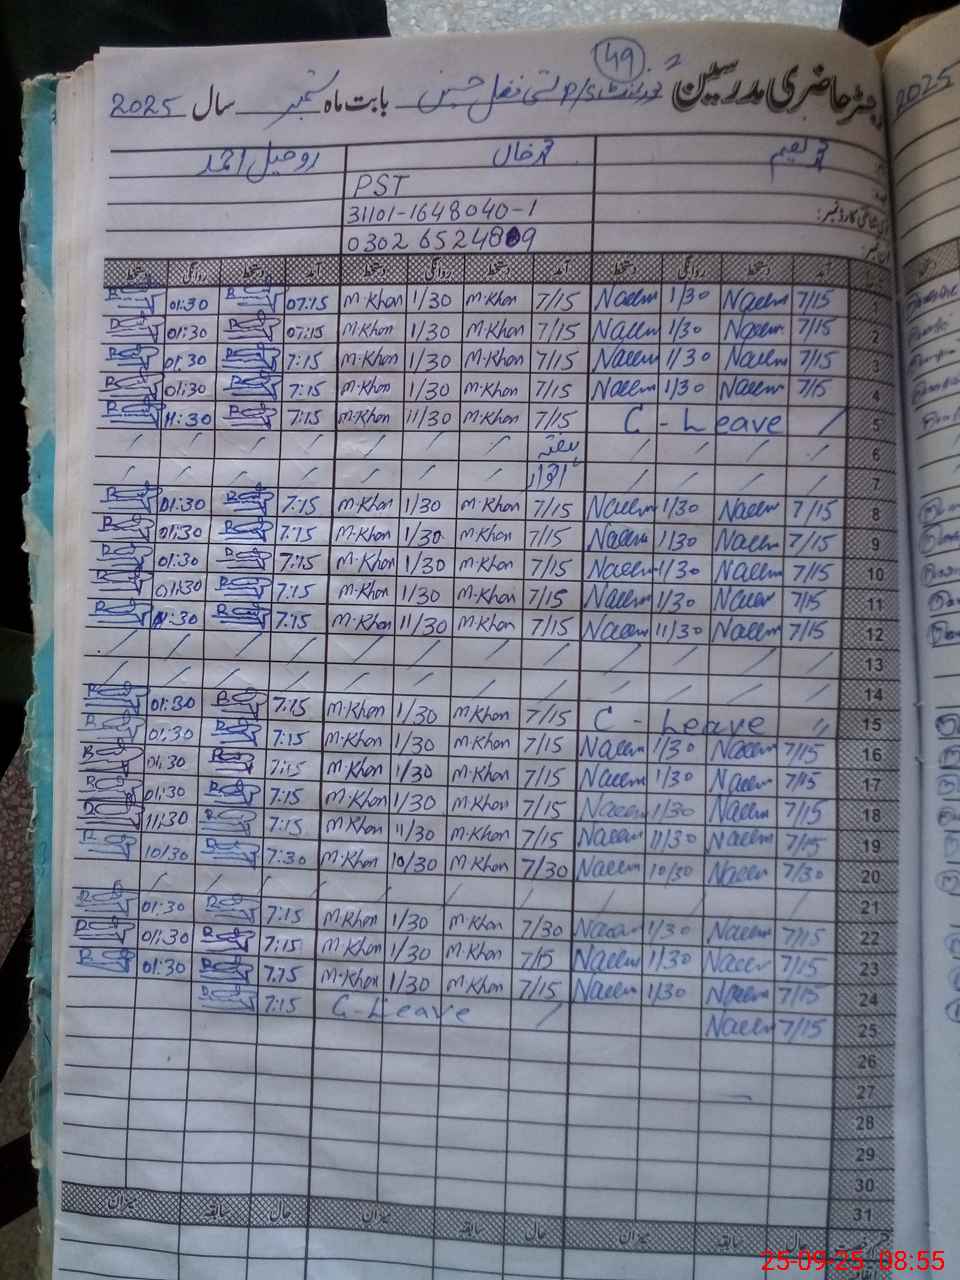 49
رجسٹر حاضری مدرسین بستی فضل حسین بابت ماہ ستمبر سال 2025
محمد نعیم محمد خان روحیل احمد
PST
31101-1648040-1
0302 6524809
آمد دستخط روانگی دستخط آمد دستخط روانگی دستخط آمد دستخط روانگی دستخط
7/15 Naeem 1/30 Naeem 7/15 M.Khan 1/30 M.Khan 07:15 01:30
2 7/15 Naeem 1/30 Naeem 7/15 M.Khan 1/30 M.Khan 07:15 01:30
3 7/15 Naeem 1/30 Naeem 7/15 M.Khan 1/30 M.Khan 7:15 01:30
4 7/15 Naeem 1/30 Naeem 7/15 M.Khan 1/30 M.Khan 7:15 01:30
5 C - Leave 7/15 M.Khan 11/30 M.Khan 7:15 11:30
6 ہفتہ
7 اتوار
8 7/15 Naeem 1/30 Naeem 7/15 M.Khan 1/30 M.Khan 7:15 01:30
9 7/15 Naeem 1/30 Naeem 7/15 M.Khan 1/30 M.Khan 7:15 01:30
10 7/15 Naeem 1/30 Naeem 7/15 M.Khan 1/30 M.Khan 7:15 01:30
11 7/15 Naeem 1/30 Naeem 7/15 M.Khan 1/30 M.Khan 7:15 01:30
12 7/15 Naeem 11/30 Naeem 7/15 M.Khan 11/30 M.Khan 7:15 11:30
13
14
15 C - Leave 7/15 M.Khan 1/30 M.Khan 7:15 01:30
16 7/15 Naeem 1/30 Naeem 7/15 M.Khan 1/30 M.Khan 7:15 01:30
17 7/15 Naeem 1/30 Naeem 7/15 M.Khan 1/30 M.Khan 7:15 01:30
18 7/15 Naeem 1/30 Naeem 7/15 M.Khan 1/30 M.Khan 7:15 01:30
19 7/15 Naeem 11/30 Naeem 7/15 M.Khan 11/30 M.Khan 7:15 11:30
20 7/30 Naeem 10/30 Naeem 7/30 M.Khan 10/30 M.Khan 7:30 10/30
21
22 7/15 Naeem 1/30 Naeem 7/30 M.Khan 1/30 M.Khan 7:15 01:30
23 7/15 Naeem 1/30 Naeem 7/15 M.Khan 1/30 M.Khan 7:15 01:30
24 7/15 Naeem 1/30 Naeem 7/15 M.Khan 1/30 M.Khan 7:15 01:30
25 7/15 Naeem C-Leave 7:15
26
27
28
29
30
31
حال سابقہ میزان حال سابقہ میزان حال سابقہ میزان
2025
25-09-25 08:55